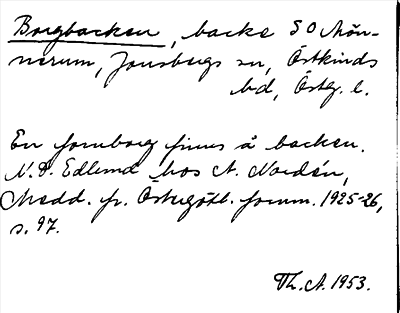 Borgbacken, backe SO Mön-
nerum, Jonsbergs sn, Östkinds
hd, Östg. l.
En fornborg finns å backen.
N. D. Edlund hos A. Nordén,
Medd. fr. Östergötl. fornm. 1925-26,
s. 97.
Th. A. 1953.